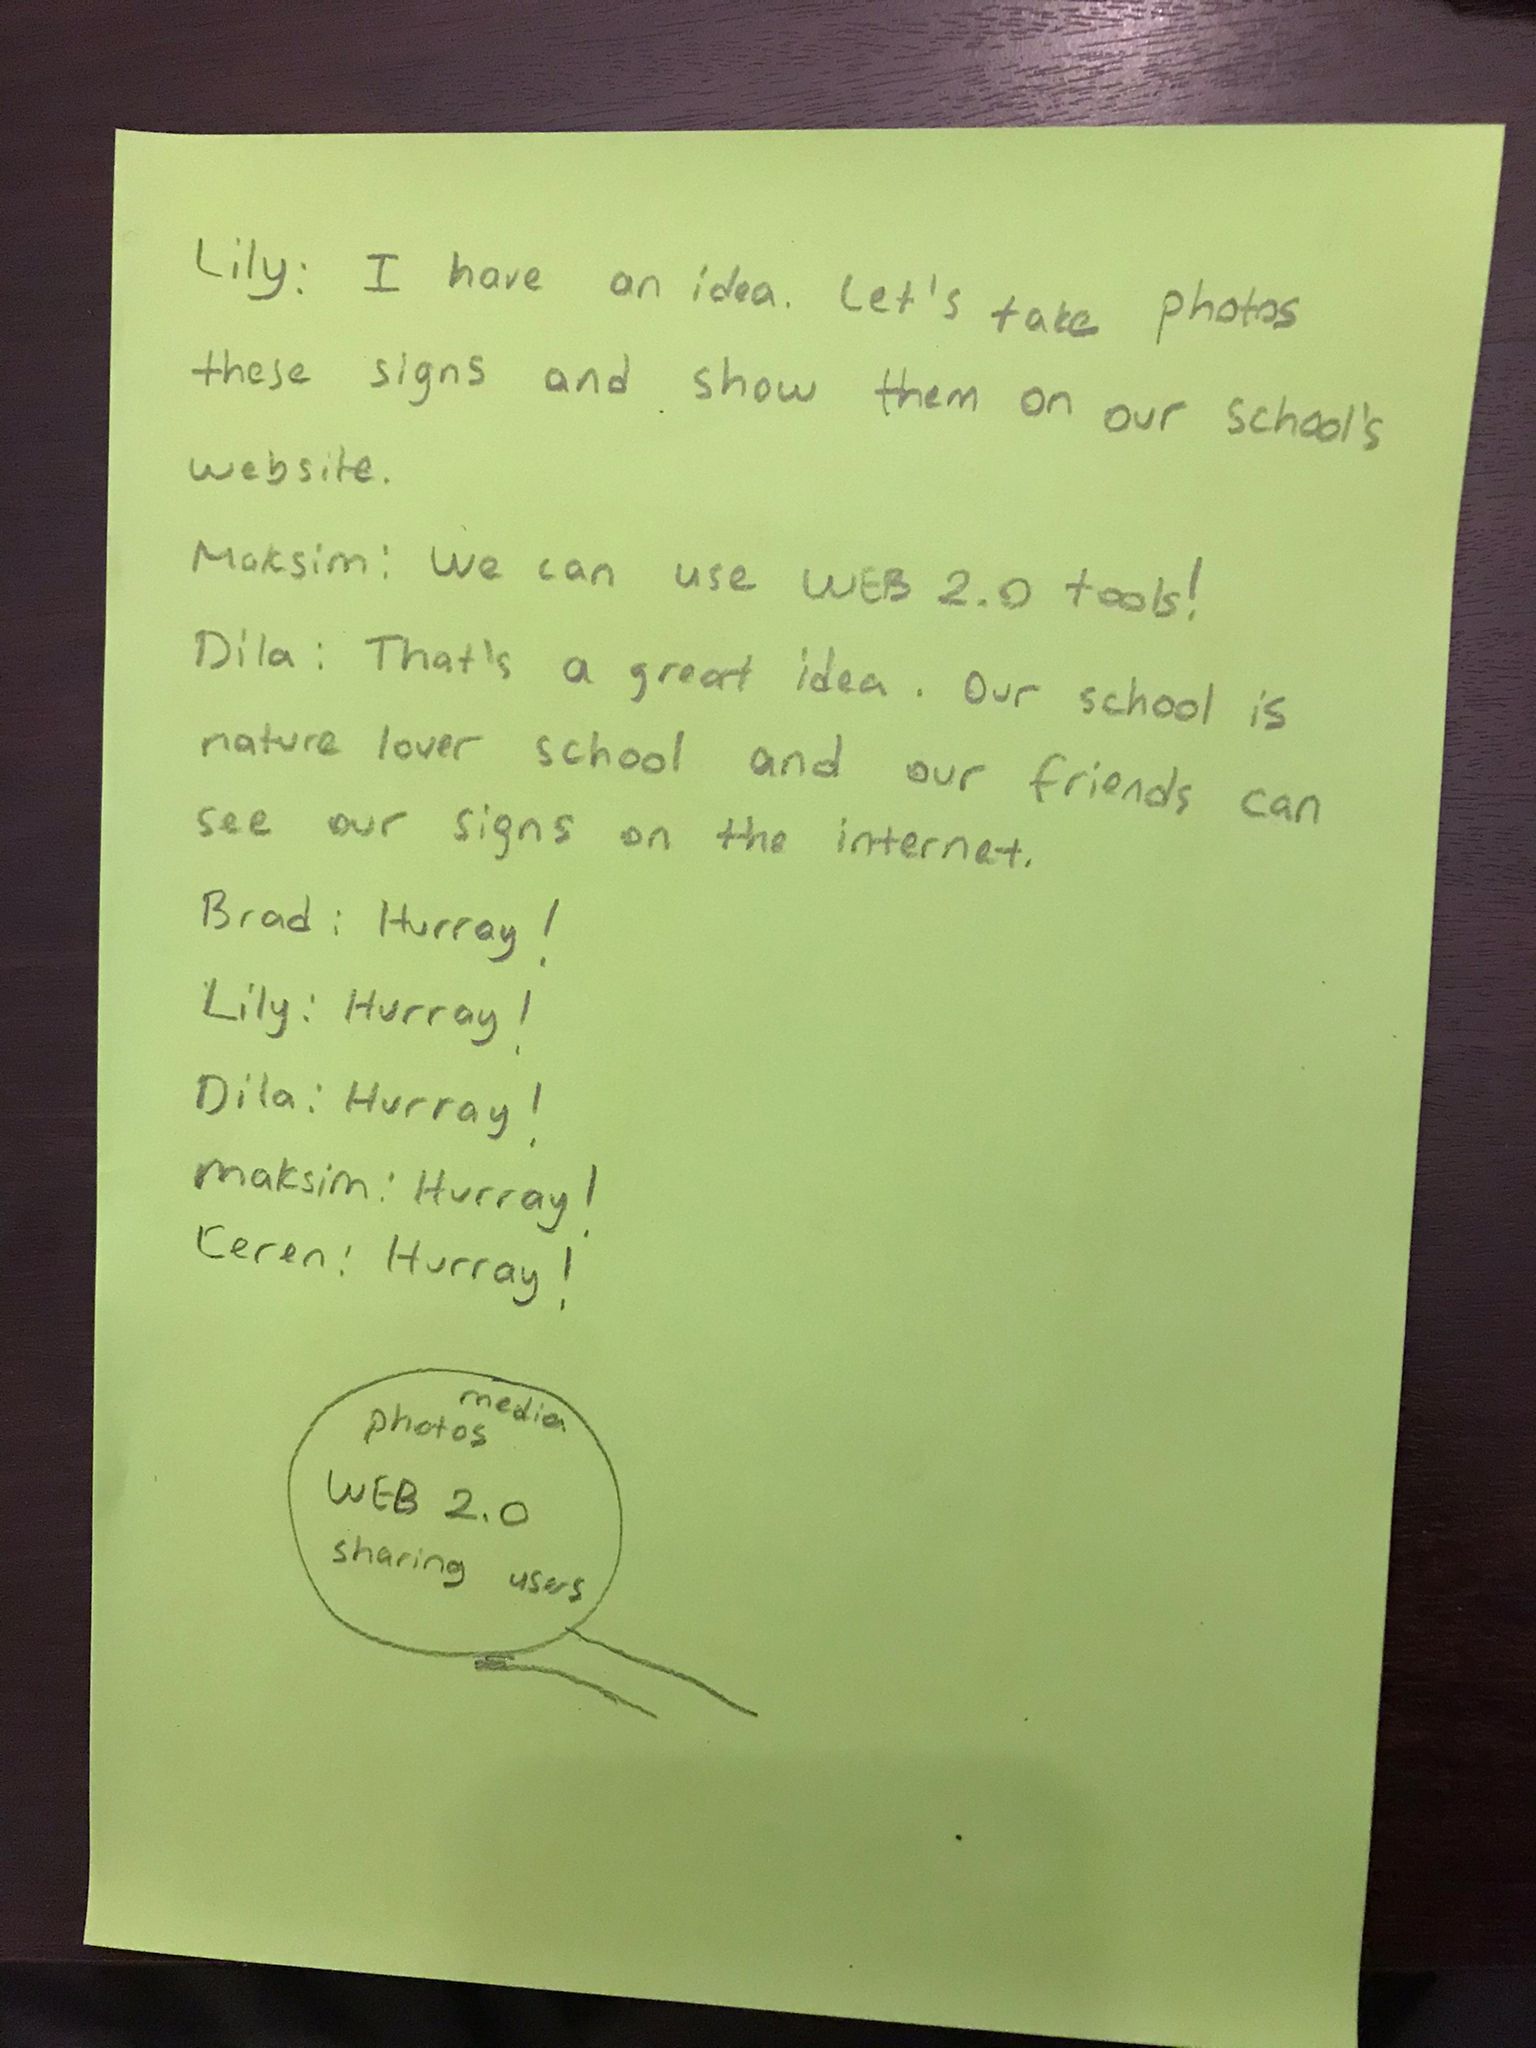 Lily: I have an idea. Let's take photos
these signs and show them on our school's
website.
Maksim: We can use WEB 2.0 tools!
Dila: That's a great idea. Our school is
nature lover school and our friends can
see our signs on the internet.
Brad: Hurray!
Lily: Hurray!
Dila: Hurray!
Maksim: Hurray!
Keren: Hurray!
media
photos
WEB 2.0
sharing users